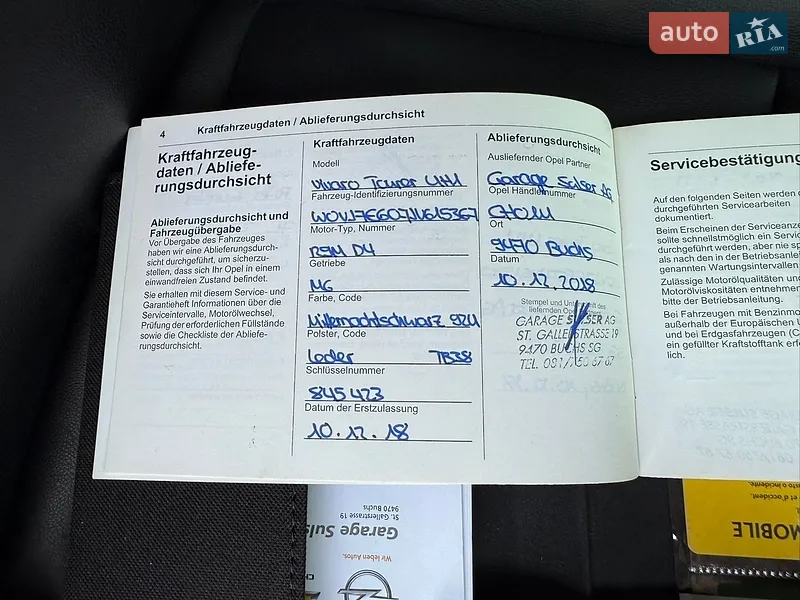 auto RIA
.com
4 Kraftfahrzeugdaten / Ablieferungsdurchsicht
Kraftfahrzeug-
daten / Abliefe-
rungsdurchsicht
Ablieferungsdurchsicht und
Fahrzeugübergabe
Vor Übergabe des Fahrzeuges
haben wir eine Ablieferungsdurch-
sicht durchgeführt, um sicherzu-
stellen, dass sich Ihr Opel in einem
einwandfreien Zustand befindet.
Sie erhalten mit diesem Service- und
Garantieheft Informationen über die
Serviceintervalle, Motorölwechsel,
Prüfung der erforderlichen Füllstände
sowie die Checkliste der Abliefe-
rungsdurchsicht.
Kraftfahrzeugdaten
Modell
Vivaro Tourer L1H1
Fahrzeug-Identifizierungsnummer
Motor-Typ, Nummer
R9M D4
Getriebe
M6
Farbe, Code
Mitternachtschwarz
Polster, Code
Leder TB38
Schlüsselnummer
845 423
Datum der Erstzulassung
10.12.18
Ablieferungsdurchsicht
Ausliefernder Opel Partner
Garage Sulser AG
Opel Händlernummer
Ort
9470 Buchs
Datum
10.12.2018
Stempel und des
liefernden
GARAGE SULSER AG
ST. GALLERSTRASSE 19
9470 BUCHS SG
TEL. 081/
Servicebestätigung
Auf den folgenden Seiten werden
durchgeführten Servicearbeiten
dokumentiert.
Beim Erscheinen der Serviceanze
sollte schnellstmöglich ein Servic
durchgeführt werden, aber nie sp
als nach den in der Betriebsanlei
genannten Wartungsintervallen
Zulässige Motorölqualitäten und
Motorölviskositäten entnehmen
bitte der Betriebsanleitung.
Bei Fahrzeugen mit Benzinmo
außerhalb der Europäischen U
und bei Erdgasfahrzeugen (C
ein gefüllter Kraftstofftank erfo
lich.
Wir leben Autos.
Garage Suls
St. Gallerstrasse 19
9470 Buchs
MOBILE
et d'accident.